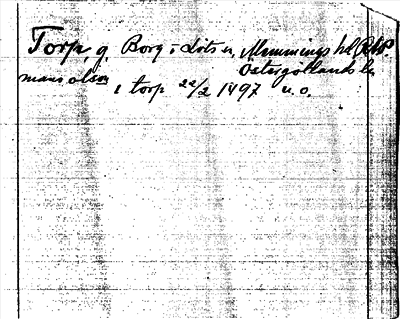 Torp g. Borg o Löts n, Memmings hd
Östergötlands l
måns olson
i torp 22/2 1497 u.o.